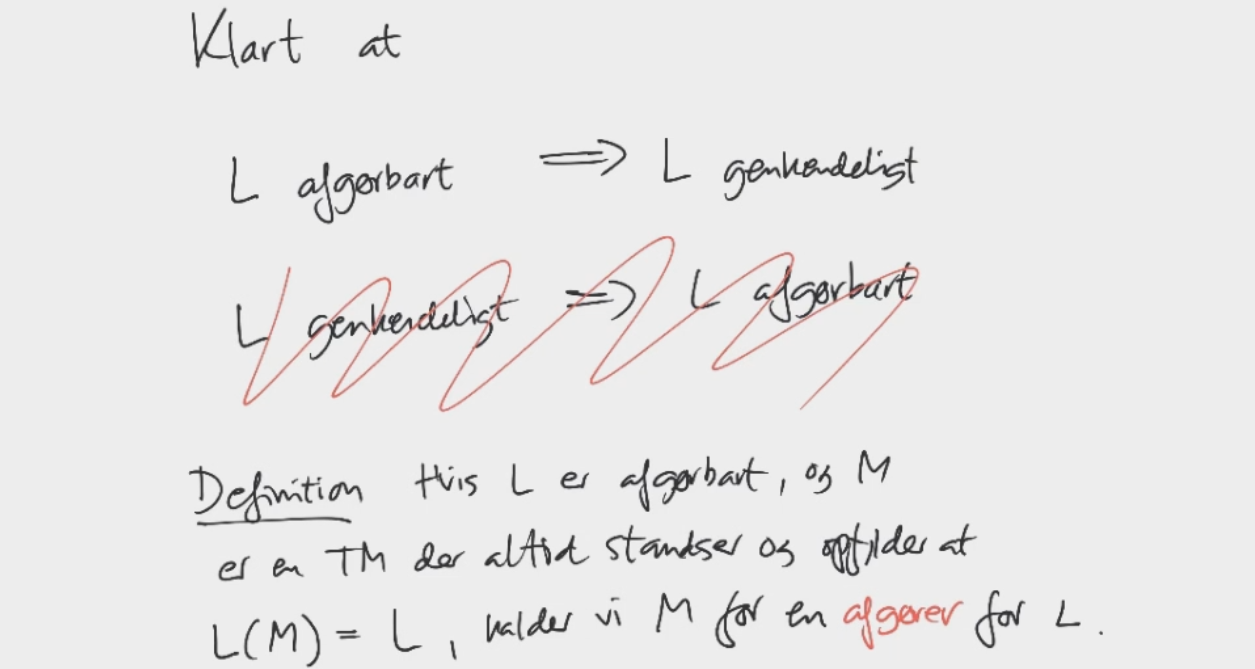 Klart at
L afgørbart ⟹ L genkendeligt
L genkendeligt ⟹ L afgørbart
Definition Hvis L er afgørbart, og M
er en TM der altid standser og opfylder at
L(M) = L, kalder vi M for en afgører for L.